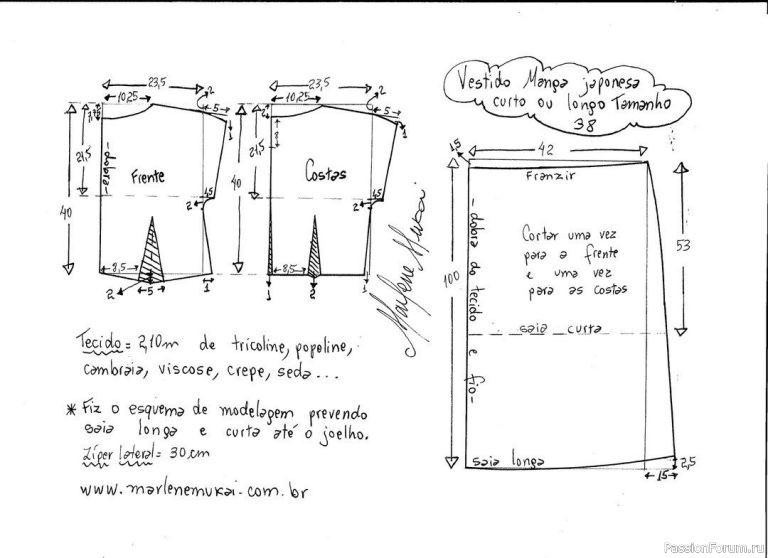 Vestido Manga japonesa
curto ou longo Tamanho
38
23,5
2
10,25
5
1
21,5
40
-dobra-
Frente
1,5
2
8,5
5
2
1
23,5
2
10,25
5
2
8
1
21,5
40
Costas
1,5
2
8,5
1
2
1
Marlene Mukai
1,5
42
Franzir
53
100
-dobra do tecido e fio-
Cortar uma vez
para a frente
e uma vez
para as costas
saia curta
saia longa
2,5
15
Tecido = 2,10m de tricoline, popeline,
cambraia, viscose, crepe, seda...
* Fiz o esquema de modelagem prevendo
saia longa e curta até o joelho.
Zíper lateral = 30 cm
www.marlenemukai.com.br
PassionForum.ru